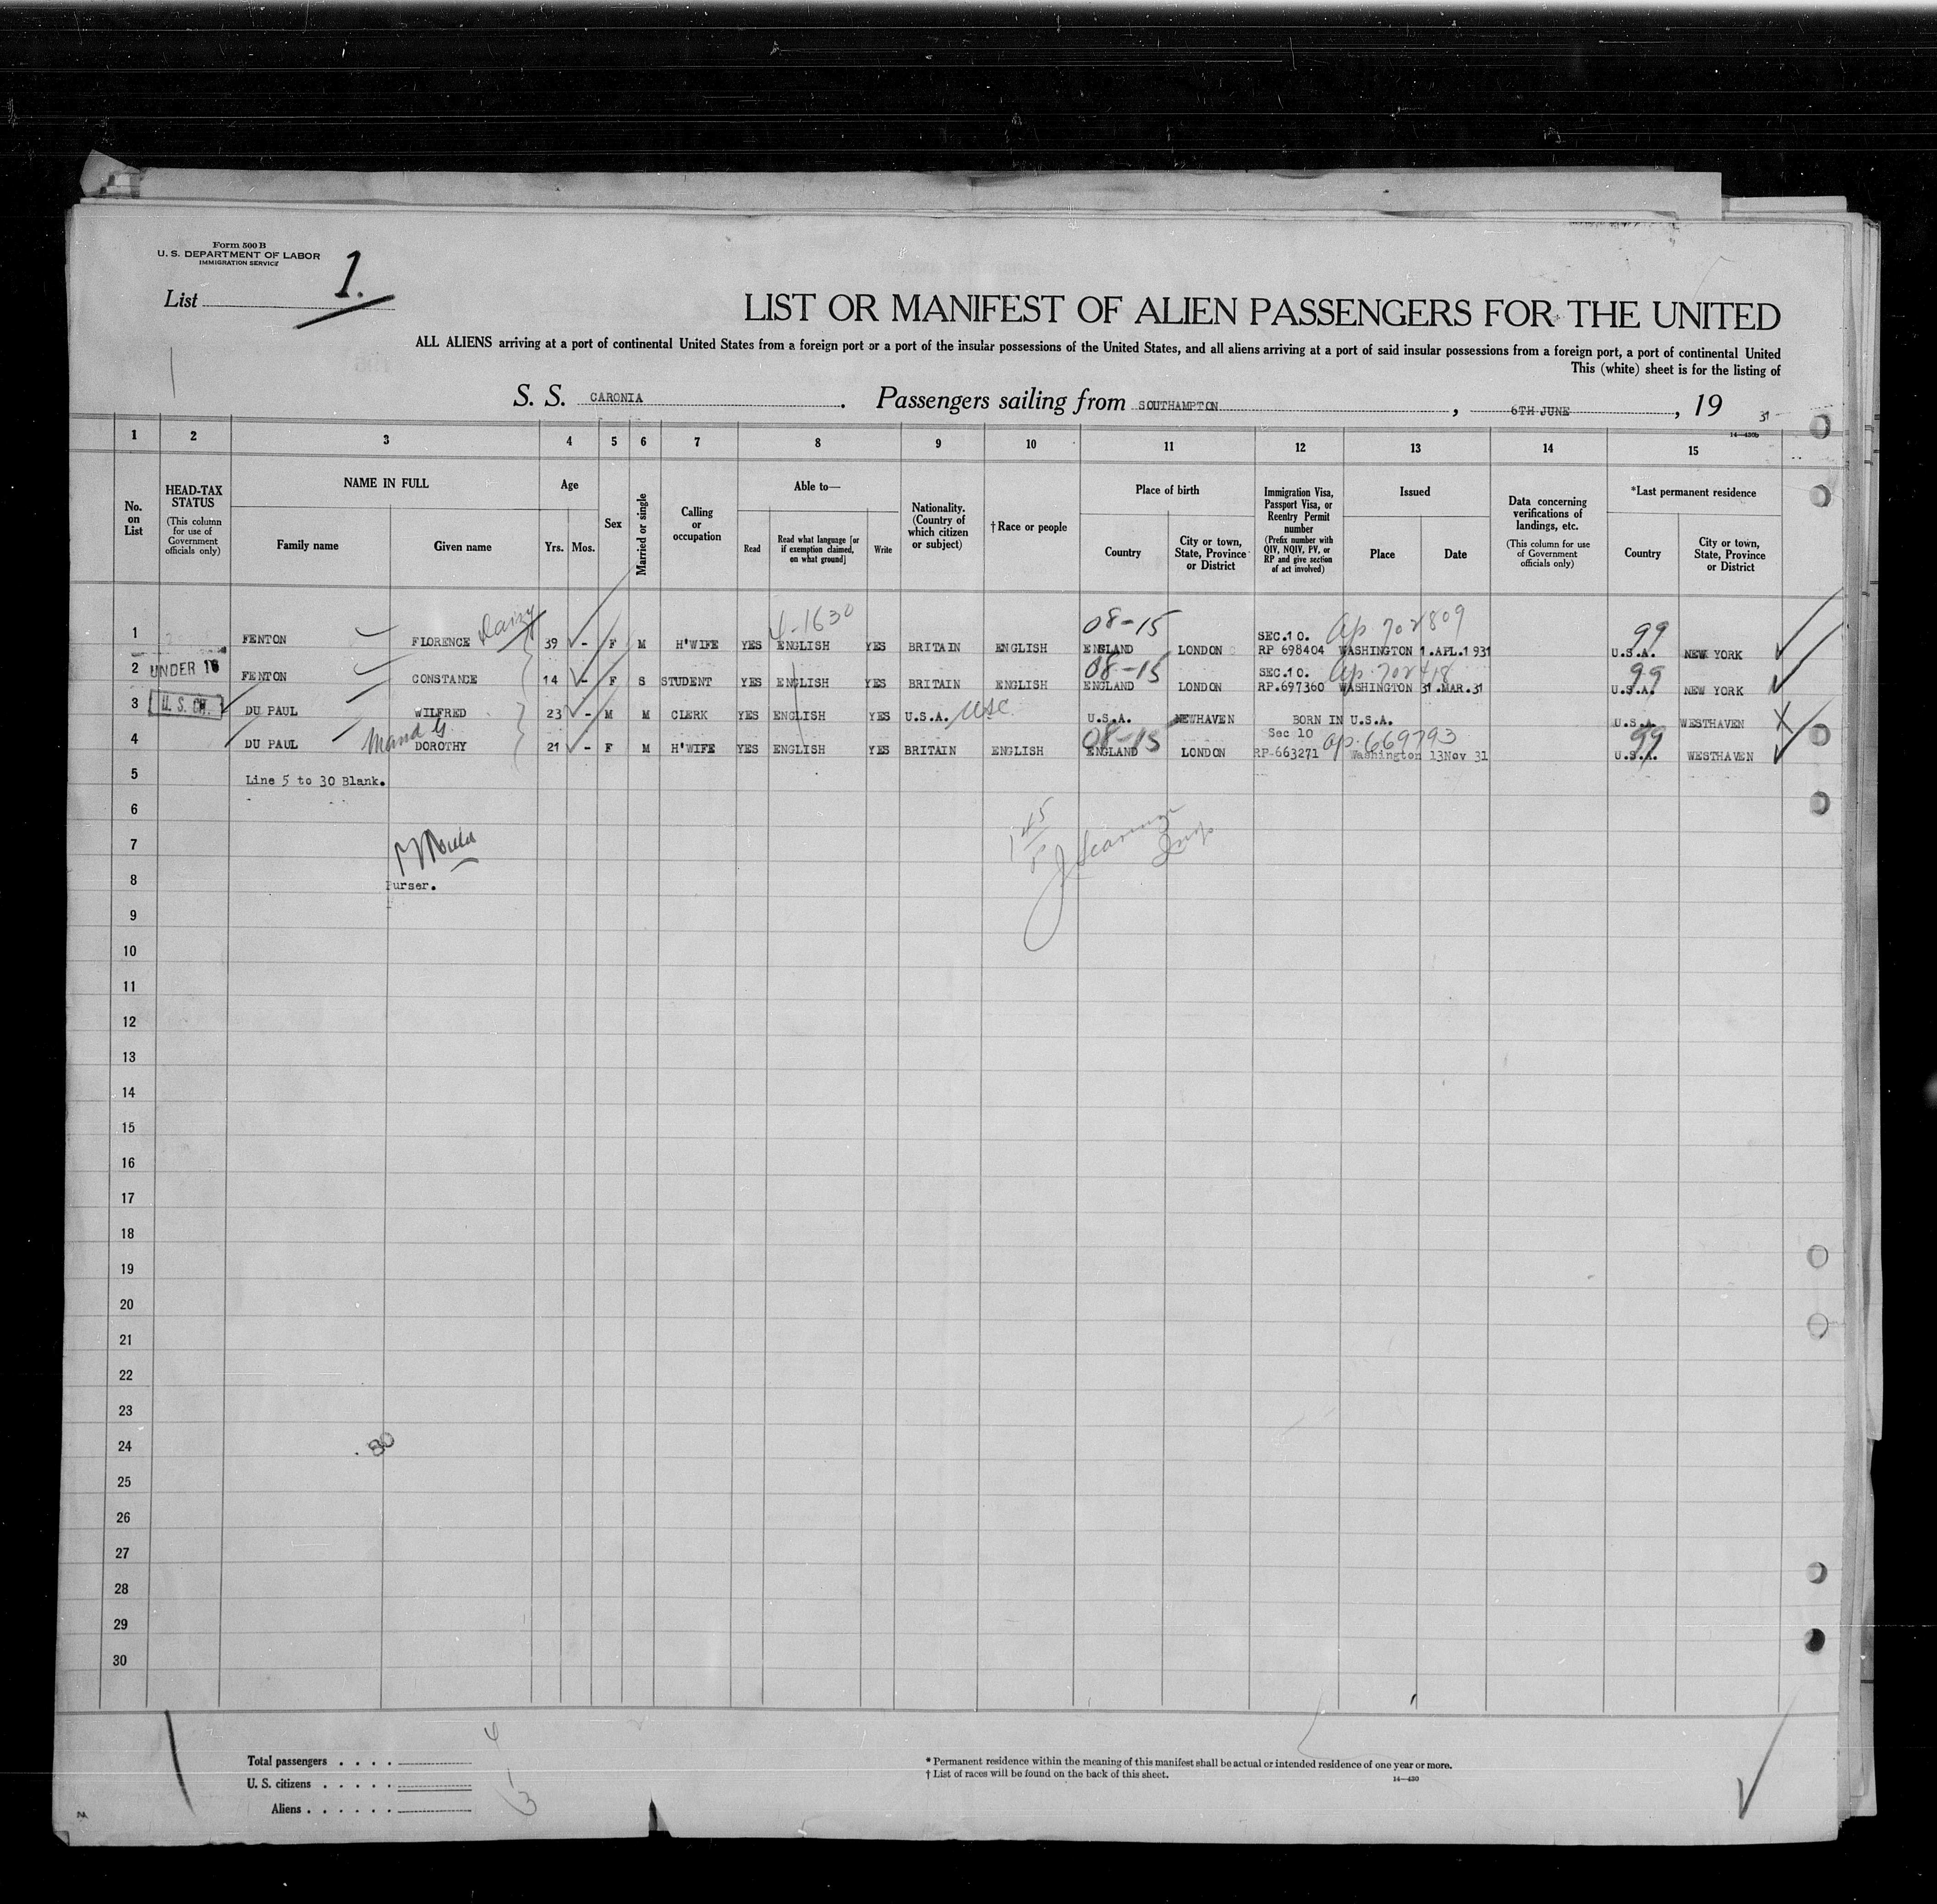 Form 500 B
U. S. DEPARTMENT OF LABOR
IMMIGRATION SERVICE
List 1.
LIST OR MANIFEST OF ALIEN PASSENGERS FOR THE UNITED
ALL ALIENS arriving at a port of continental United States from a foreign port or a port of the insular possessions of the United States, and all aliens arriving at a port of said insular possessions from a foreign port, a port of continental United
This (white) sheet is for the listing of
S. S. CARONIA . Passengers sailing from SOUTHAMPTON , 6TH JUNE , 19 31
14—430b
1 2 3 4 5 6 7 8 9 10 11 12 13 14 15
No. on List
HEAD-TAX STATUS
(This column for use of Government officials only)
NAME IN FULL
Family name
Given name
Age
Yrs.
Mos.
Sex
Married or single
Calling or occupation
Able to—
Read
Read what language [or if exemption claimed, on what ground]
Write
Nationality. (Country of which citizen or subject)
†Race or people
Place of birth
Country
City or town, State, Province or District
Immigration Visa, Passport Visa, or Reentry Permit number
(Prefix number with QIV, NQIV, PV, or RP and give section of act involved)
Issued
Place
Date
Data concerning verifications of landings, etc.
(This column for use of Government officials only)
*Last permanent residence
Country
City or town, State, Province or District
4-1630 08-15 SEC.10. ap 702809 99
1 FENTON FLORENCE Daisy 39 - F M H'WIFE YES ENGLISH YES BRITAIN ENGLISH ENGLAND LONDON RP 698404 WASHINGTON 1.APL.1931 U.S.A. NEW YORK
08-15 SEC.10. ap. 702418 99
2 UNDER 16 FENTON CONSTANCE 14 - F S STUDENT YES ENGLISH YES BRITAIN ENGLISH ENGLAND LONDON RP.697360 WASHINGTON 31.MAR.31 U.S.A. NEW YORK
3 DU PAUL WILFRED 23 - M M CLERK YES ENGLISH YES U.S.A. USC U.S.A. NEWHAVEN BORN IN U.S.A. U.S.A. WESTHAVEN
08-15 Sec 10 ap. 669793 99
4 DU PAUL DOROTHY 21 - F M H'WIFE YES ENGLISH YES BRITAIN ENGLISH ENGLAND LONDON RP-663271 Washington 13Nov 31 U.S.A. WESTHAVEN
5 Line 5 to 30 Blank.
6
7
8 Purser.
9
10
11
12
13
14
15
16
17
18
19
20
21
22
23
24 80
25
26
27
28
29
30
Total passengers . . . . 4
U. S. citizens . . . . . 1
Aliens . . . . . . 3
* Permanent residence within the meaning of this manifest shall be actual or intended residence of one year or more.
† List of races will be found on the back of this sheet.
14—430